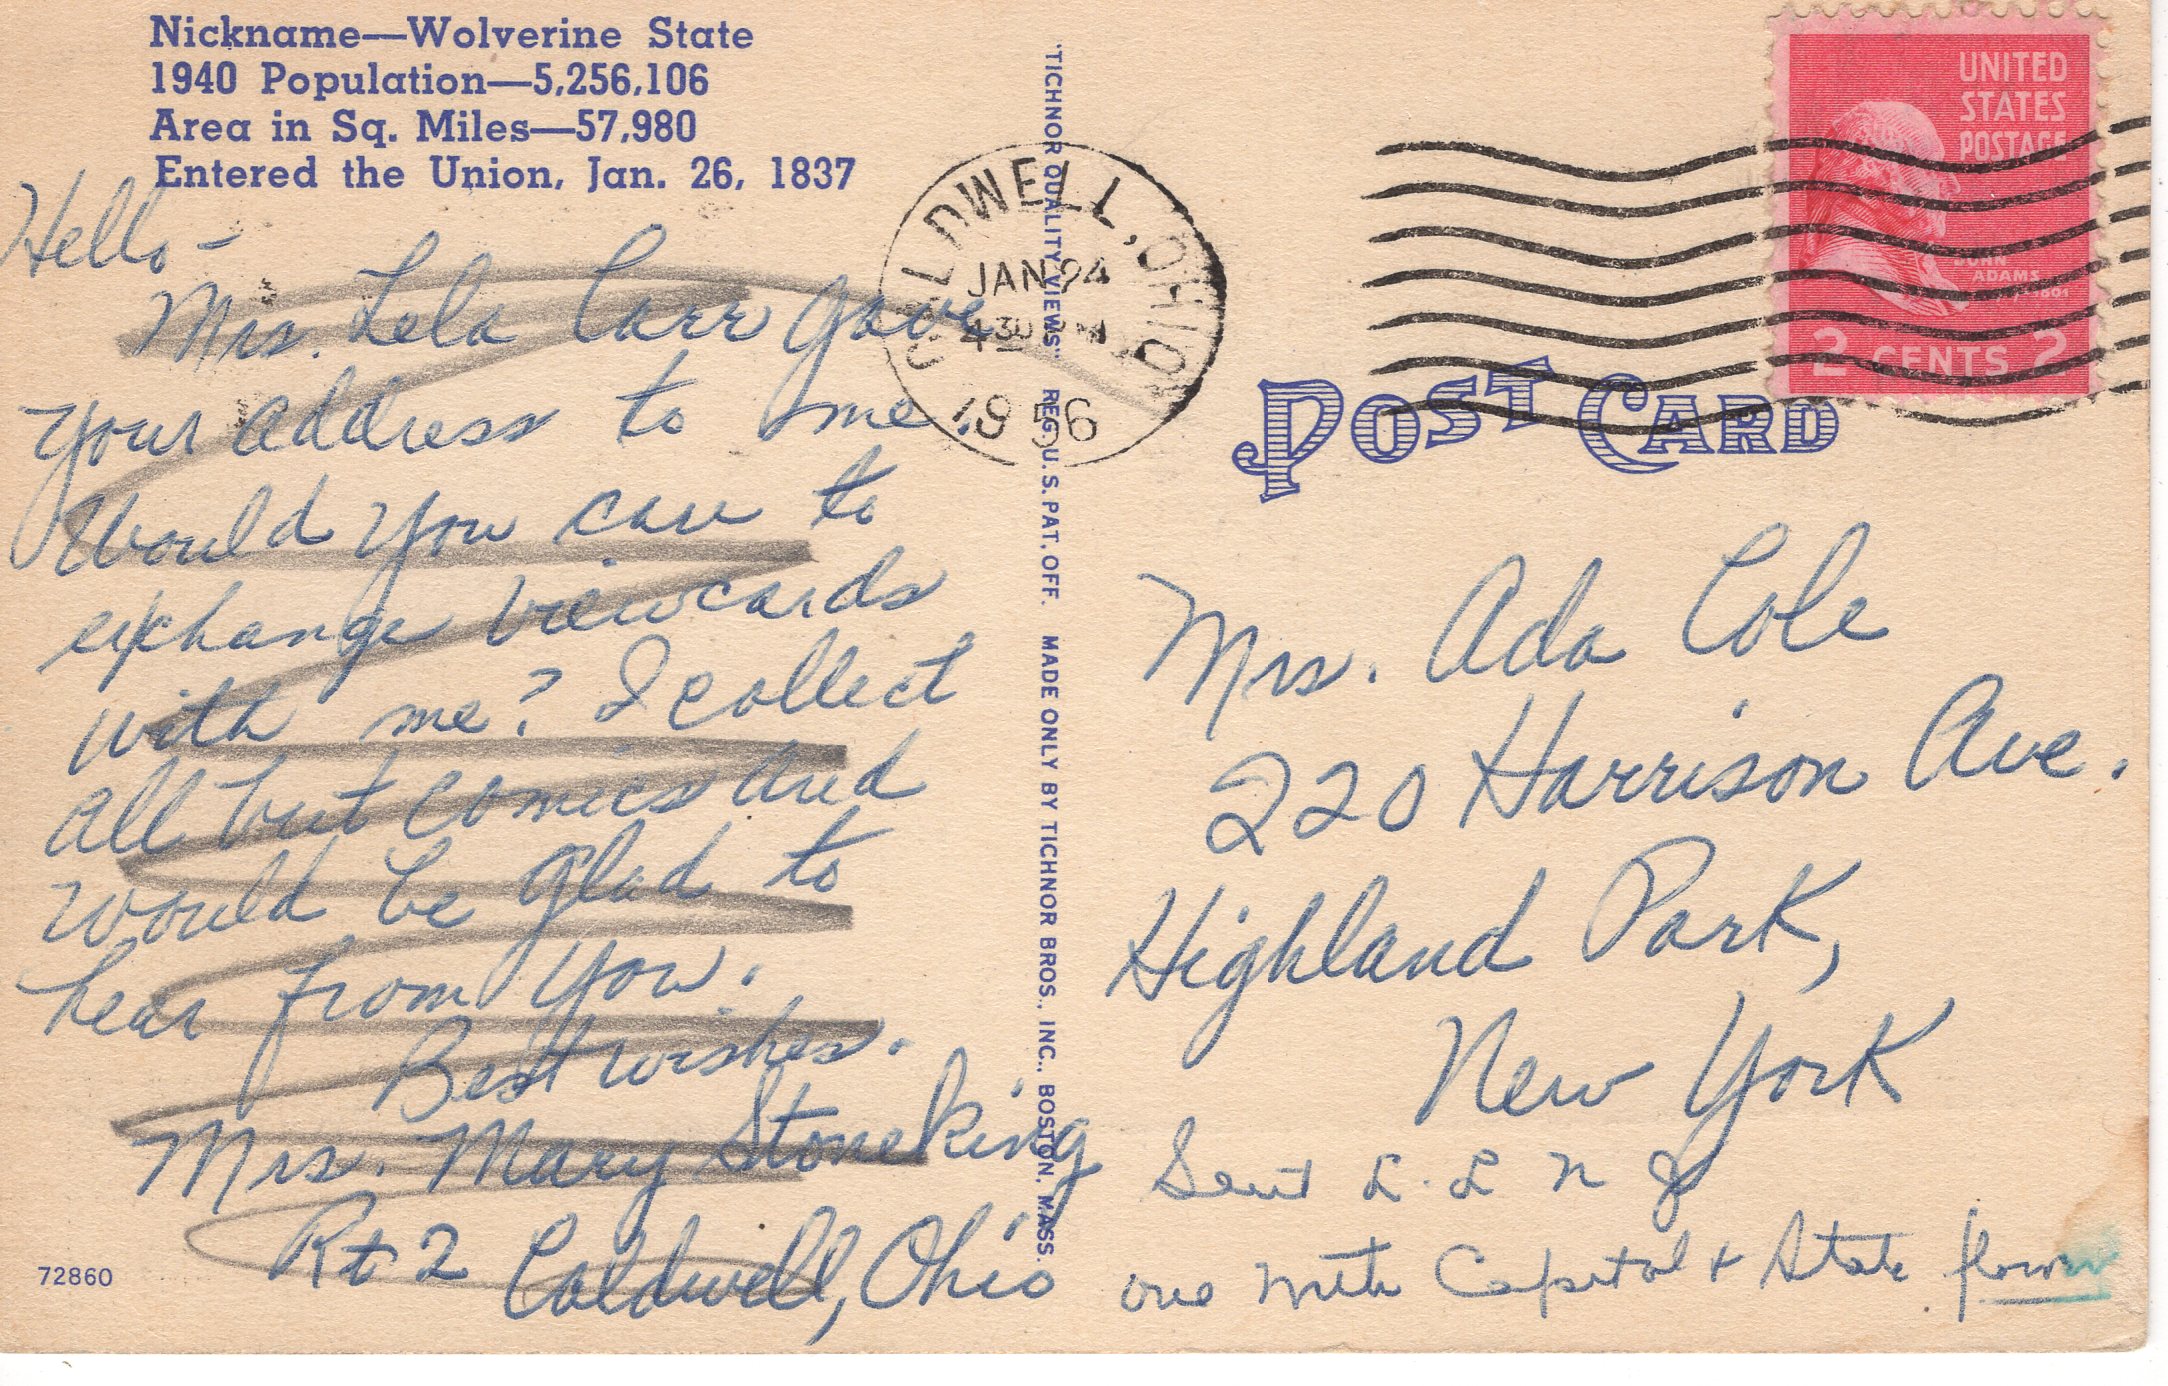 Nickname—Wolverine State
1940 Population—5,256,106
Area in Sq. Miles—57,980
Entered the Union, Jan. 26, 1837
Hello -
Mrs. Lela Carr gave
your address to me.
Would you care to
exchange viewcards
with me? I collect
all but comics and
would be glad to
hear from you.
Best wishes.
Mrs. Mary Stoneking
Rt 2 Caldwell, Ohio
72860
"TICHNOR QUALITY VIEWS" REG. U. S. PAT. OFF. MADE ONLY BY TICHNOR BROS., INC., BOSTON, MASS.
CALDWELL, OHIO
JAN 24
430 PM
1956
UNITED
STATES
POSTAGE
JOHN
ADAMS
2 CENTS 2
POST CARD
Mrs. Ada Cole
220 Harrison Ave.
Highland Park,
New York
Sent L. L N J
one with Capitol + State flower